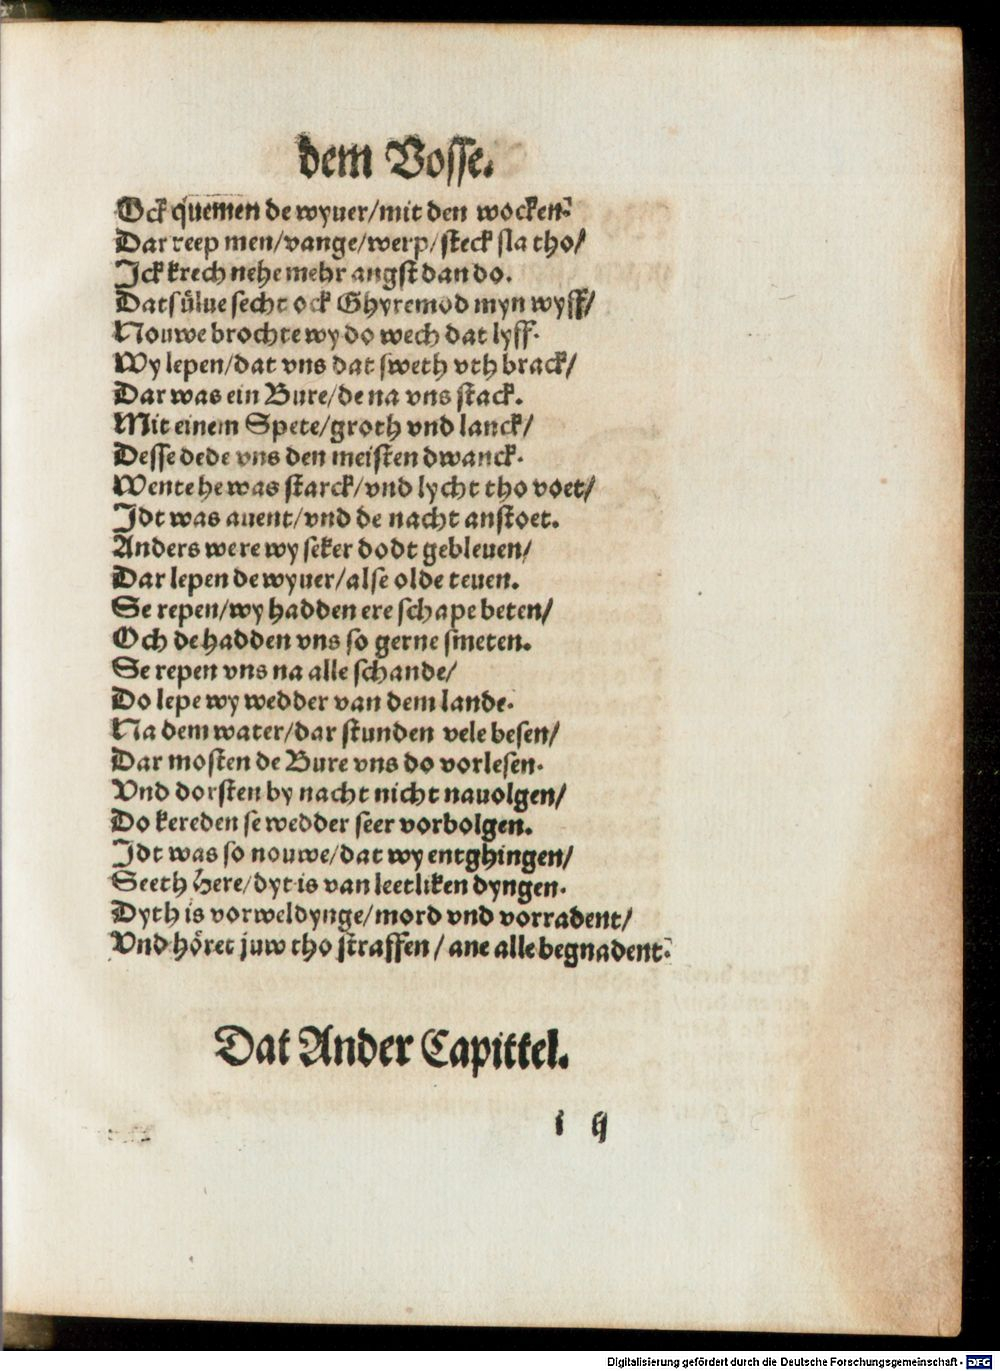 dem Vosse.
Ock quemen de wyuer/mit den wocken.
Dar reep men/vange/werp/steck sla tho/
Jck krech nehe mehr angst dan do.
Datsülue secht ock Ghyremod myn wyff/
Nouwe brochte wy do wech dat lyff.
Wy lepen/dat vns dat sweth vth brack/
Dar was ein Bure/de na vns stack.
Mit einem Spete/groth vnd lanck/
Desse dede vns den meisten dwanck.
Wente he was starck/vnd lycht tho voet/
Jdt was auent/vnd de nacht anstoet.
Anders were wy seker dodt gebleuen/
Dar lepen de wyuer/alse olde teuen.
Se repen/wy hadden ere schape beten/
Och de hadden vns so gerne smeten.
Se repen vns na alle schande/
Do lepe wy wedder van dem lande.
Na dem water/dar stunden vele besen/
Dar mosten de Bure vns do vorlesen.
Vnd dorsten by nacht nicht nauolgen/
Do kereden se wedder seer vorbolgen.
Jdt was so nouwe/dat wy entghingen/
Seeth Here/dyt is van leetliken dyngen.
Dyth is vorweldynge/mord vnd vorradent/
Vnd höret juw tho straffen/ane alle begnadent.
Dat Ander Capittel.
i ij
Digitalisierung gefördert durch die Deutsche Forschungsgemeinschaft - DFG